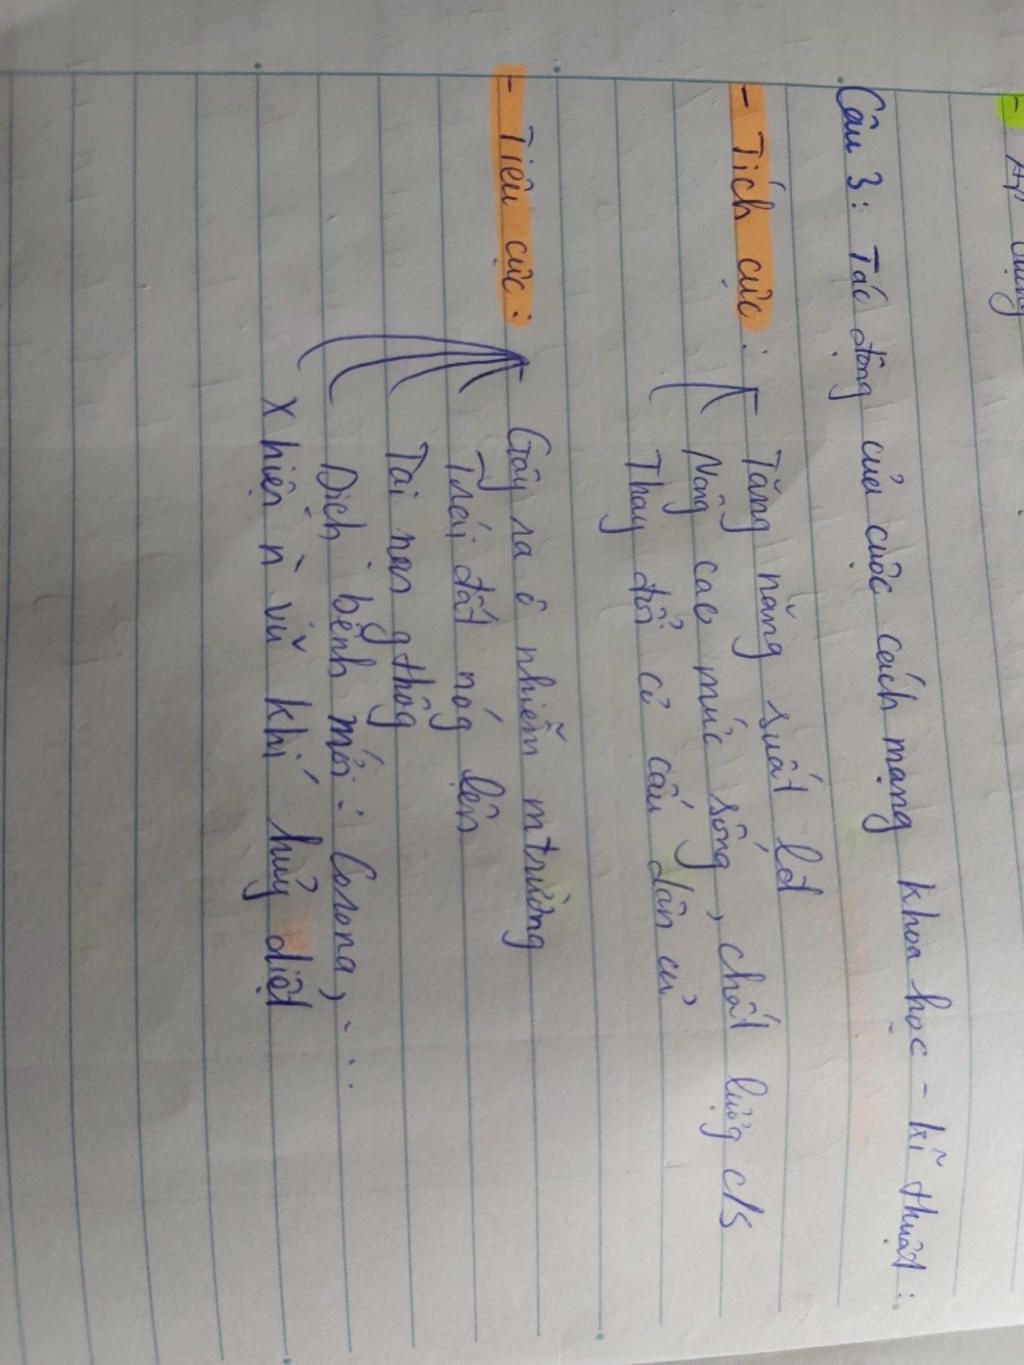 Câu 3: Tác động của cuộc cách mạng khoa học - kĩ thuật:
- Tích cực: Tăng năng suất lđ
Nâng cao mức sống, chất lượng c/s
Thay đổi cơ cấu dân cư
- Tiêu cực: Gây ra ô nhiễm mtrường
Trái đất nóg lên
Tai nạn gthôg
Dịch bệnh mới: Corona, ...
X hiện n` vũ khí hủy diệt